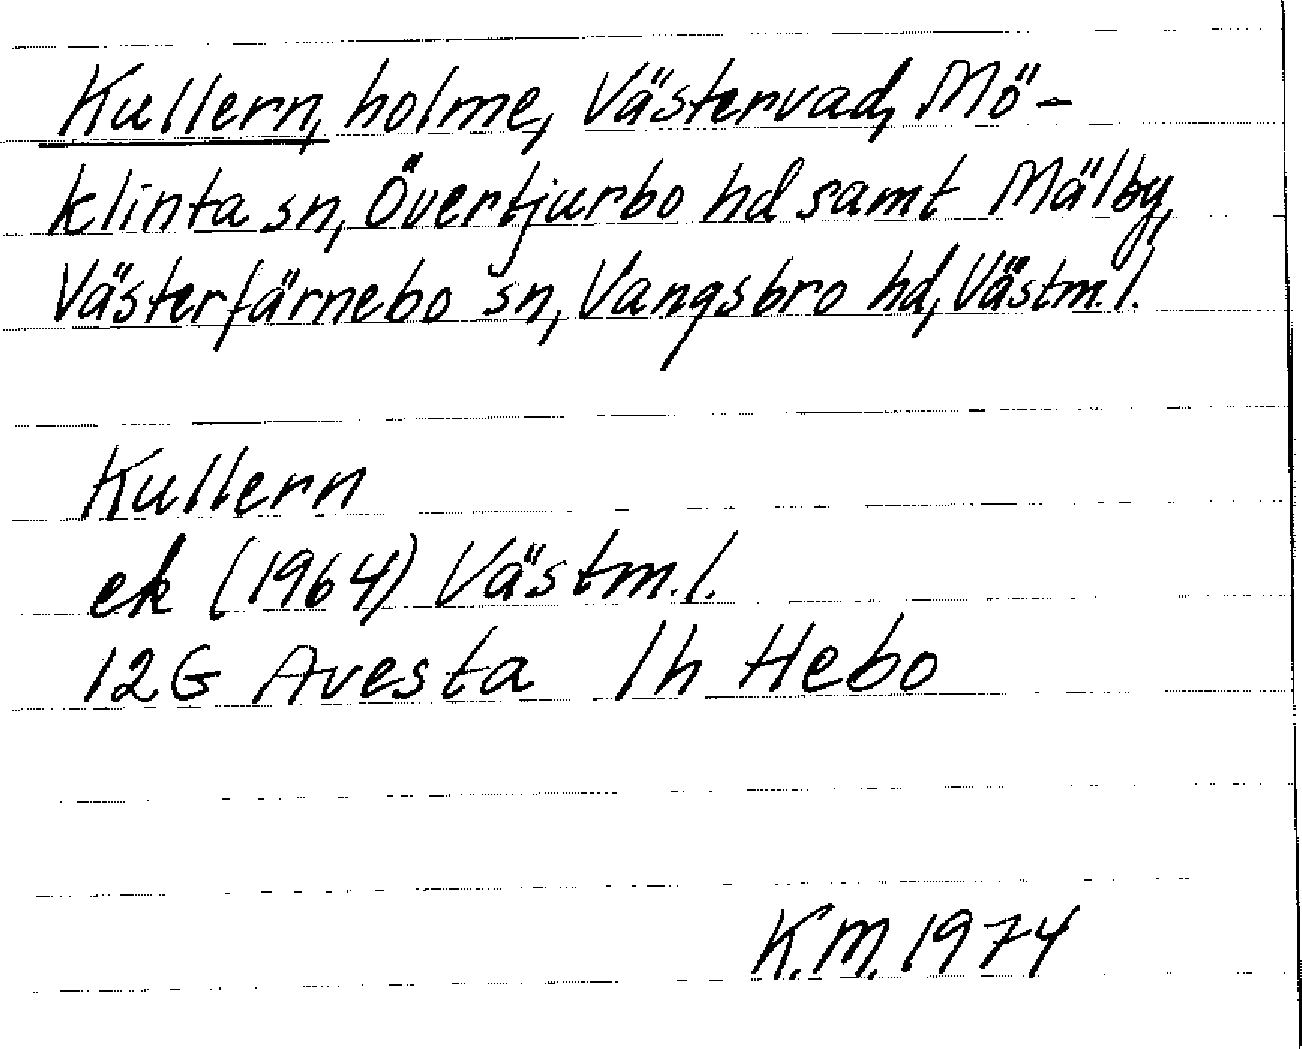 Kullern, holme, Västervad, Mö-
klinta sn, Övertjurbo hd samt Mälby,
Västerfärnebo sn, Vangsbro hd, Västm.l.
Kullern
ek (1964) Västm.l.
12G Avesta 1h Hebo
K.M. 1974